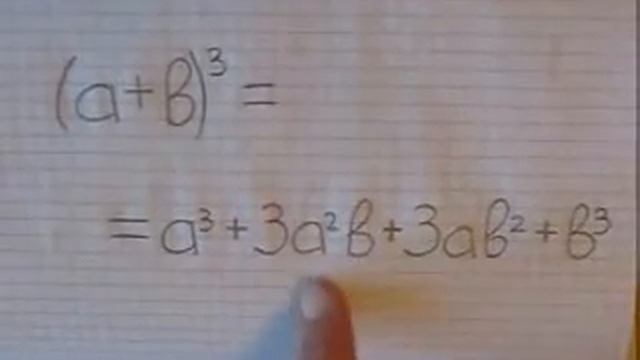 (a+b)³ =
= a³ + 3a²b + 3ab² + b³